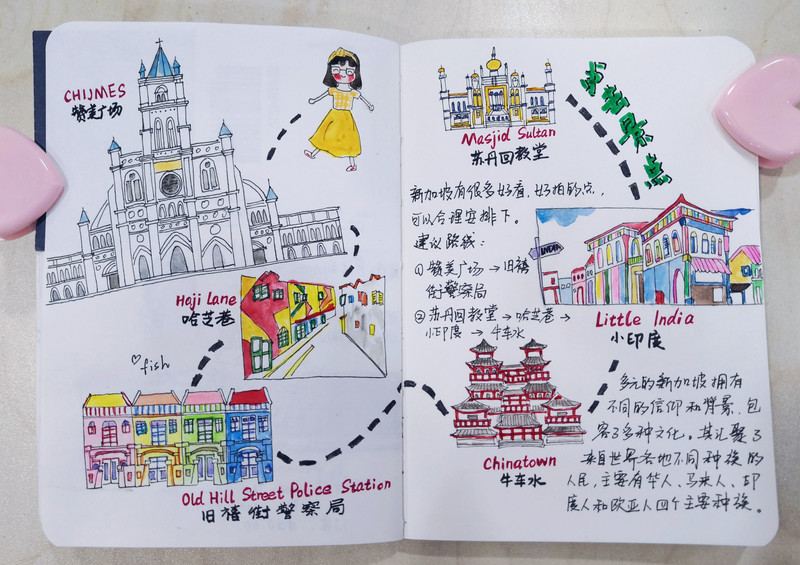 CHIJMES
赞美广场
Haji Lane
哈芝巷
fish
Old Hill Street Police Station
旧禧街警察局
Masjid Sultan
苏丹回教堂
景点
新加坡有很多好看、好拍的点,
可以合理安排下。
建议路线:
① 赞美广场 → 旧禧
街警察局
② 苏丹回教堂 → 哈芝巷 →
小印度 → 牛车水
INDIA
Little India
小印度
Chinatown
牛车水
多元的新加坡拥有
不同的信仰和背景,包
容了多种文化。其汇聚了
来自世界各地不同种族的
人民,主要有华人、马来人、印
度人和欧亚人四个主要种族。